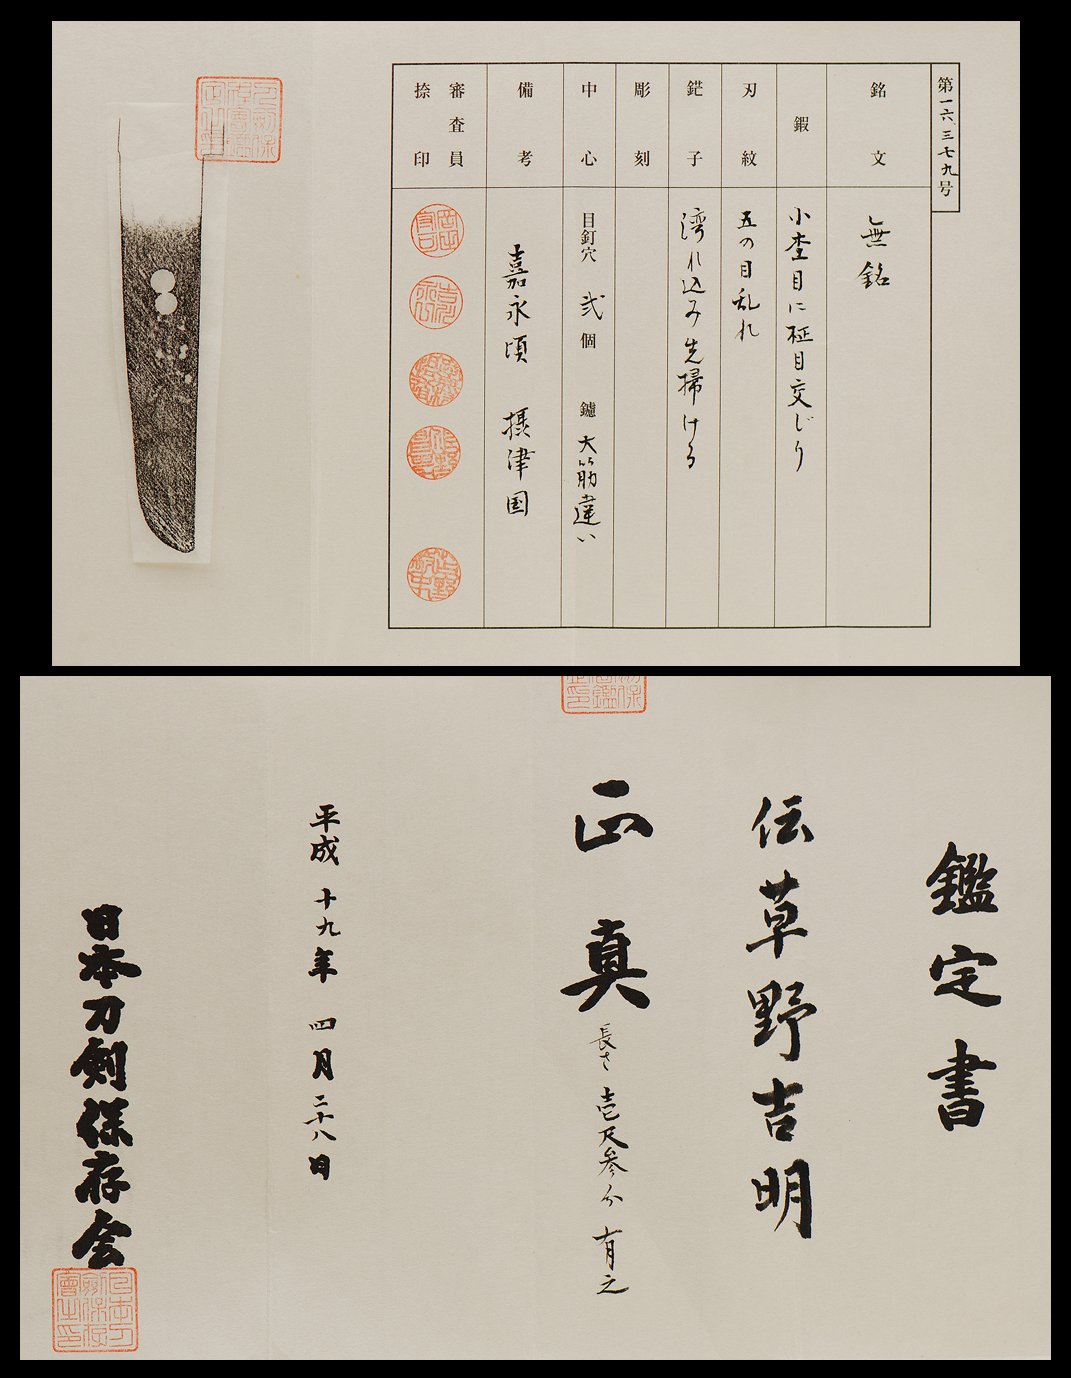 第一六三七九号
銘文 無銘
鍜 小杢目に柾目交じり
刃紋 五の目乱れ
鋩子 湾れ込み先掃ける
彫刻
中心 目釘穴 弐個 鑢 大筋違い
備考 嘉永頃 摂津国
審査員
捺印
鑑定書
伝草野吉明
正真 長さ 壱尺参分 有之
平成十九年 四月二十八日
日本刀剣保存会